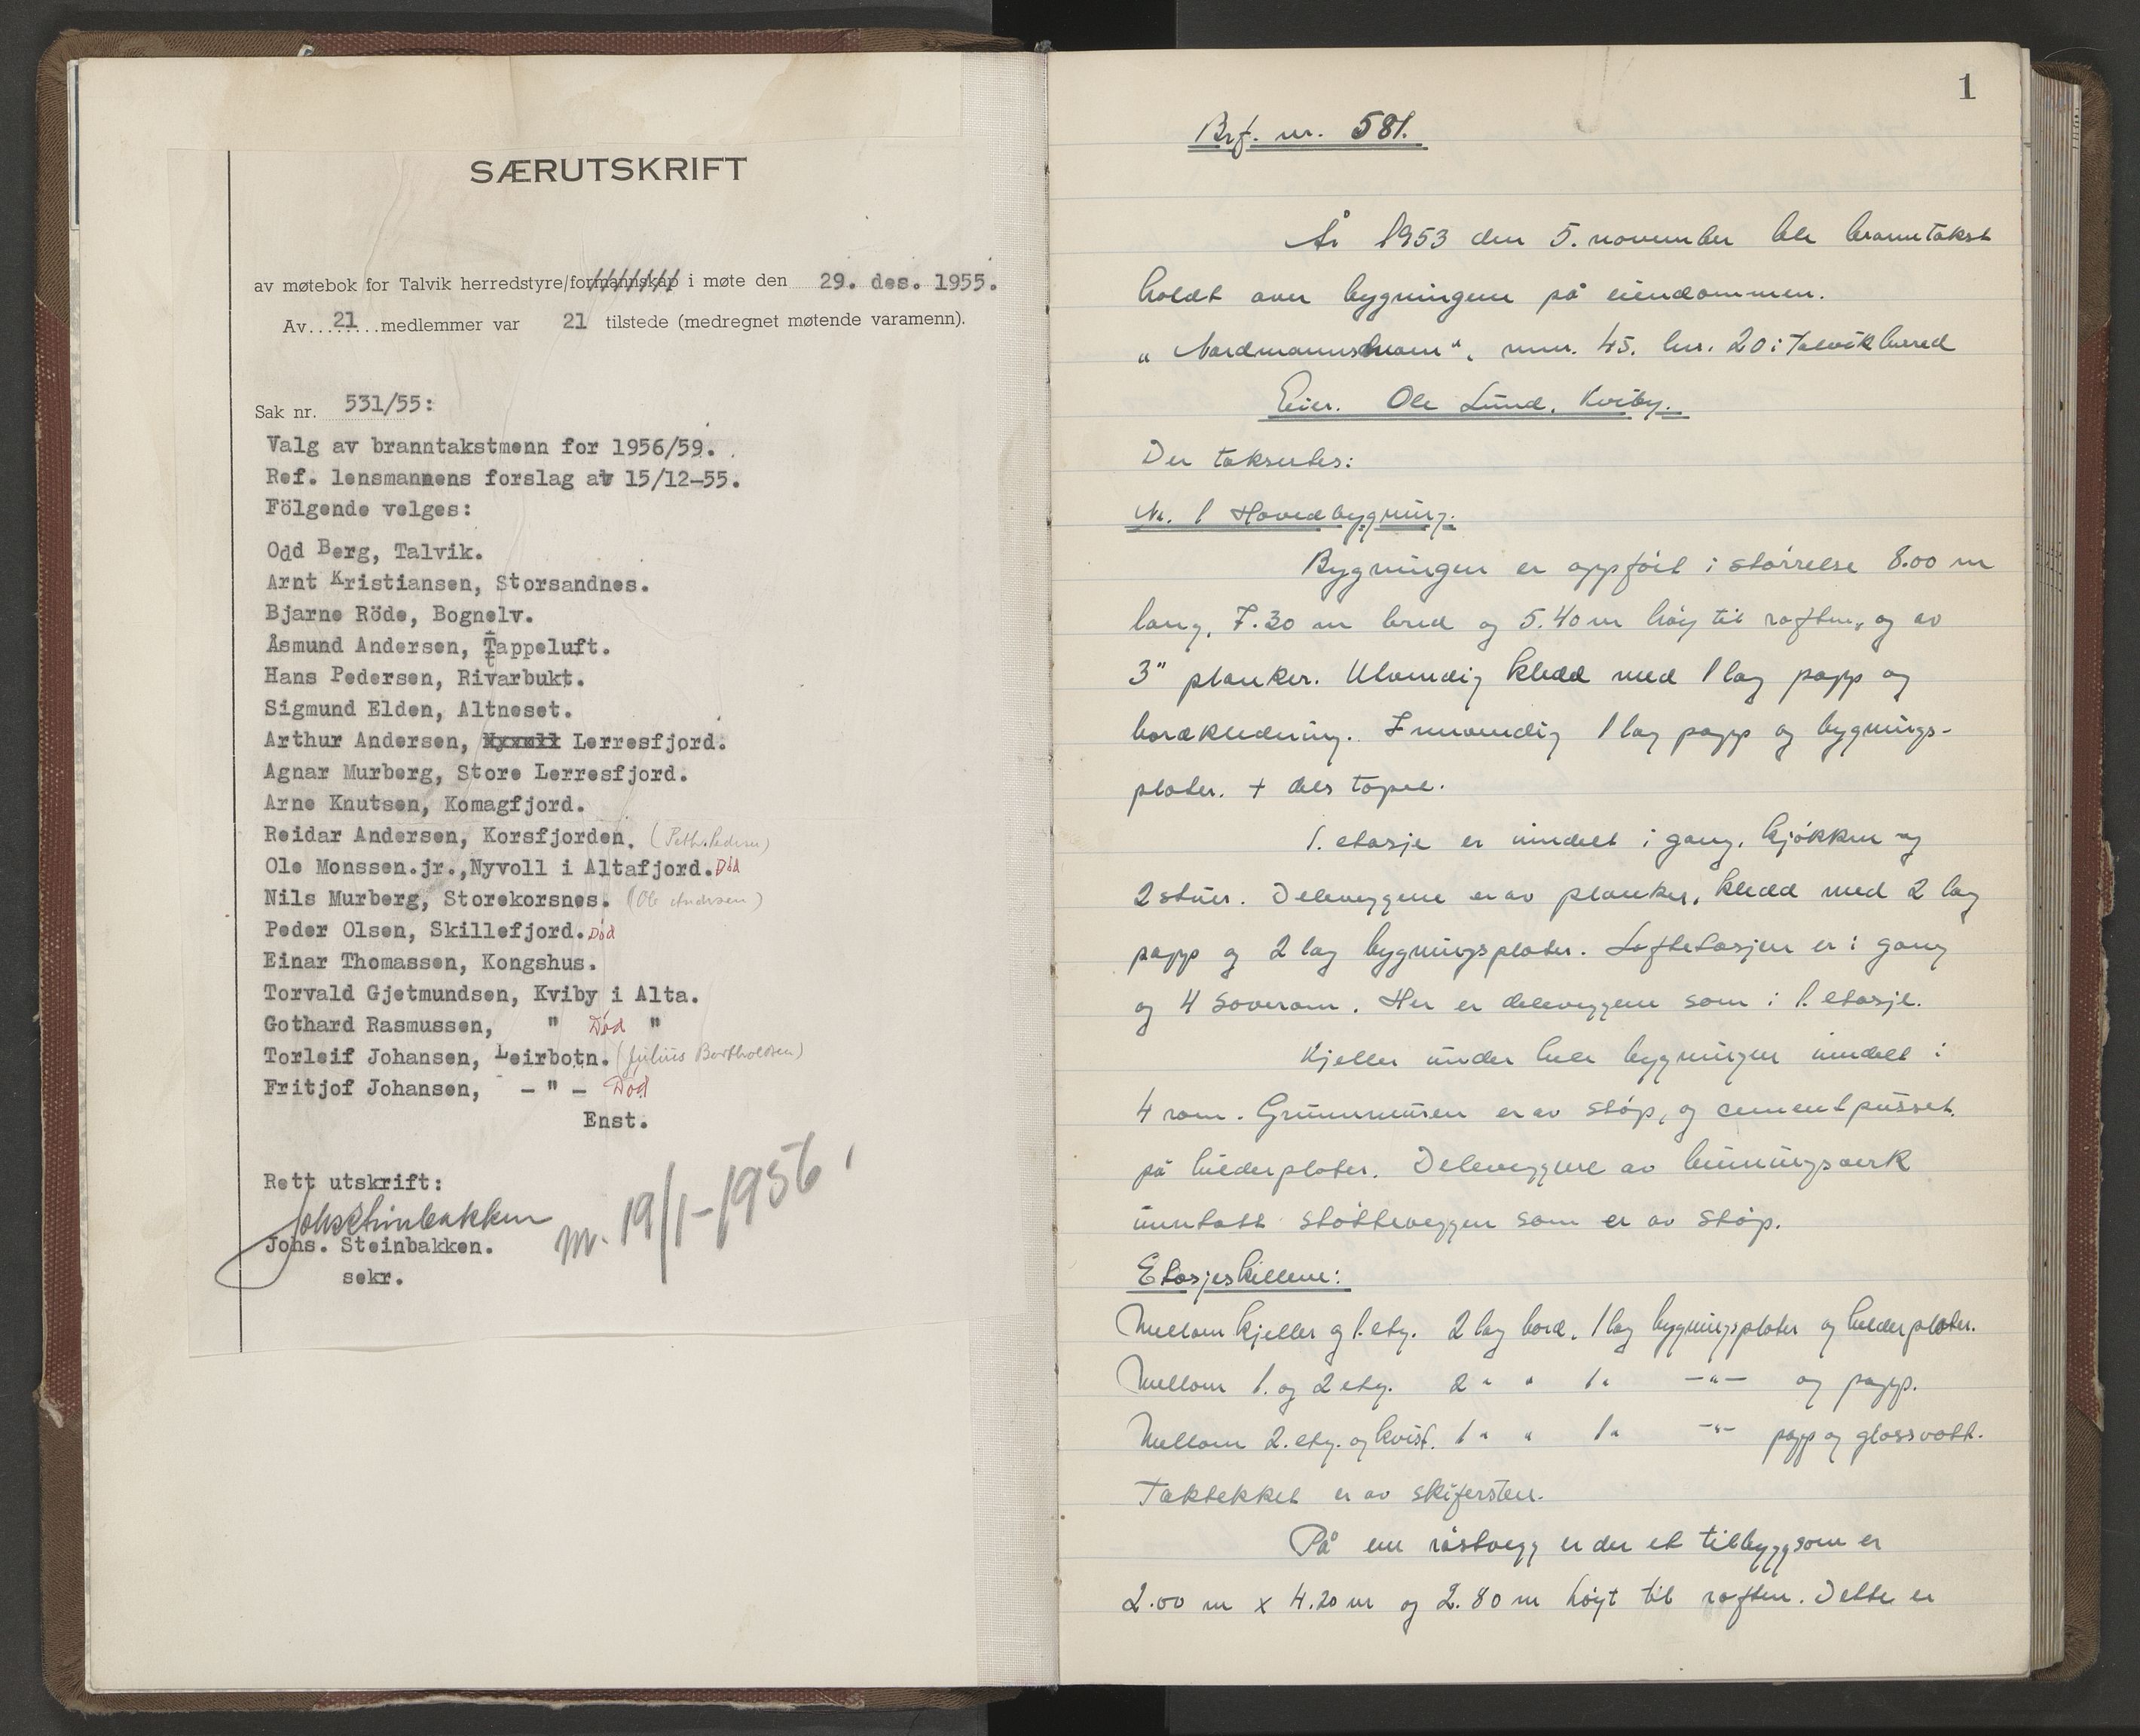 SÆRUTSKRIFT
av møtebok for Talvik herredstyre/formannskap i møte den 29. des. 1955.
Av....21....medlemmer var 21 tilstede (medregnet møtende varamenn).
Sak nr. 531/55:
Valg av branntakstmenn for 1956/59.
Ref. lensmannens forslag av 15/12-55.
Fölgende velges:
Odd Berg, Talvik.
Arnt Kristiansen, Storsandnes.
Bjarne Röde, Bognelv.
Åsmund Andersen, Tappeluft.
Hans Pedersen, Rivarbukt.
Sigmund Elden, Altneset.
Arthur Andersen, Nyvoll Lerresfjord.
Agnar Murberg, Store Lerresfjord.
Arne Knutsen, Komagfjord.
Reidar Andersen, Korsfjorden. (Peth. Pedersen)
Ole Monssen.jr.,Nyvoll i Altafjord. Död
Nils Murberg, Storekorsnes. (Ole Andersen)
Peder Olsen, Skillefjord. Död
Einar Thomassen, Kongshus.
Torvald Gjetmundsen, Kviby i Alta.
Gothard Rasmussen, " Död "
Torleif Johansen, Leirbotn. (Julius Bertholdsen)
Fritjof Johansen, - " - Död
Enst.
Rett utskrift:
Johs Steinbakken
Johs. Steinbakken.
sekr.
m. 19/1-1956.
1
Brf. nr. 581.
År 1953 den 5. november ble branntakst
holdt over bygningene på eiendommen.
"Nordmannsheim", nr. 45. bnr. 20 i Talvik herred
Eier. Ole Lund, Kviby.
Der takseres:
Nr. 1 Hovedbygning.
Bygningen er oppfört i störrelse 8.00 m
lang, 7.30 m bred og 5.40 m höy til raften, og av
3" planker. Utvendig kledd med 1 lag papp og
bordkledning. Innvendig 1 lag papp og bygnings-
plater. + dels tapet.
1. etasje er inndelt i gang, kjökken og
2 stuer. Deleveggene er av planker, kledd med 2 lag
papp og 2 lag bygningsplater. Loftetasjen er i gang
og 4 soverom. Her er deleveggene som i 1. etasje.
Kjeller under hele bygningen inndelt i
4 rom. Grunnmuren er av stöp, og cementpusset.
på hulderplater. Deleveggene av binningsverk
inntatt stötteveggen som er av stöp.
Etasjeskillene:
Mellom kjeller og 1. etg. 2 lag bord, 1 lag bygningsplater og hulderplater.
Mellom 1. og 2 etg. 2 " " 1 " -"- og papp.
Mellom 2. etg. og kvist. 1 " " 1 " -"- papp og glassvatt.
Taktekket er av skifersten.
På ene röstvegg er der et tilbygg som er
2.00 m x 4.20 m og 2.80 m höyt til raften. Dette er